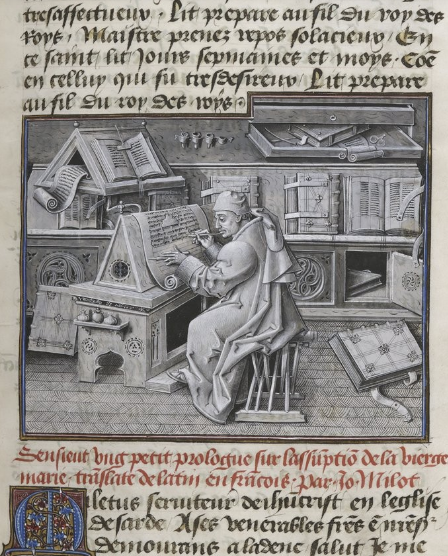 tresaffectueux. Lit prepare au fil du roy des
Roys, Maistre prenez repos solacieux, En
ce saint lit Jours sepmaines et moys. Coē
en celluy qui fu tresdesireux, Lit prepare
au fil du roy des roys.
Sensieut vng petit prologue sur lassūptiō de la vierge
marie, traslate de latin en francois, par Jo Milot
Miletus seruiteur de ihūcrist en leglise
de sarde. A ses venerables fres & mēs
demourans a ladene salut Je me